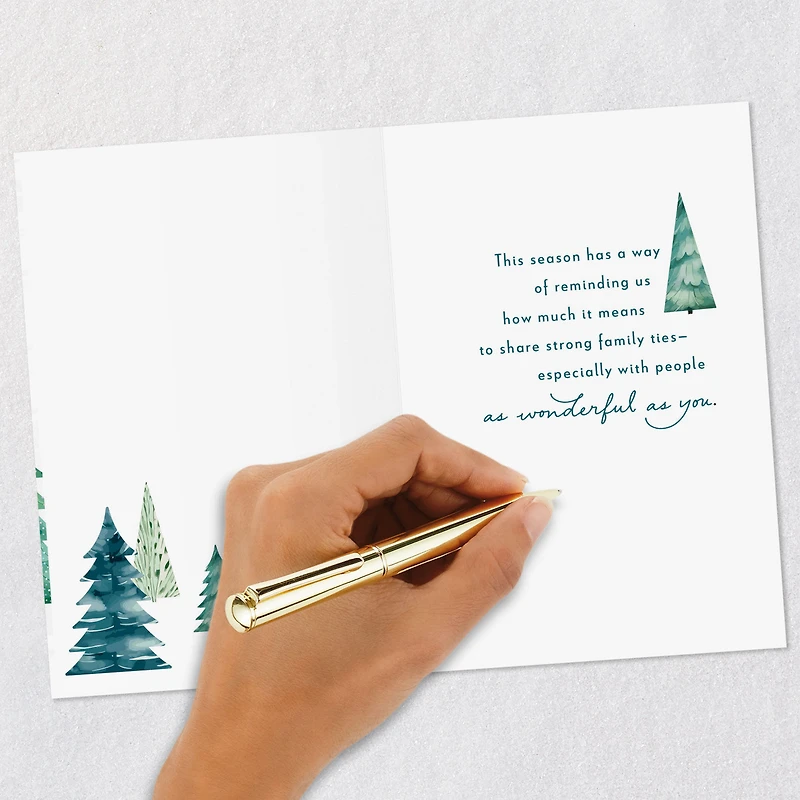 This season has a way
of reminding us
how much it means
to share strong family ties–
especially with people
as wonderful as you.